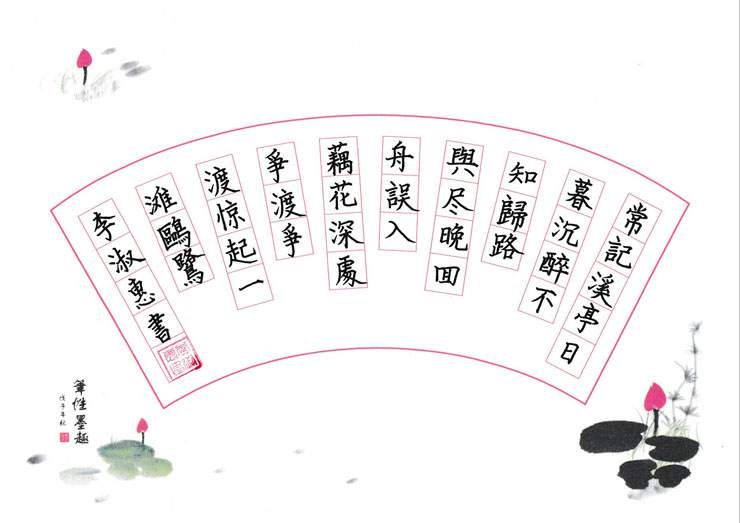 常記溪亭日
暮沉醉不
知歸路
與尽晚囬
舟誤入
藕花深處
爭渡爭
渡惊起一
滩鷗鷺
李淑惠書
筆性墨趣
戊子年秋